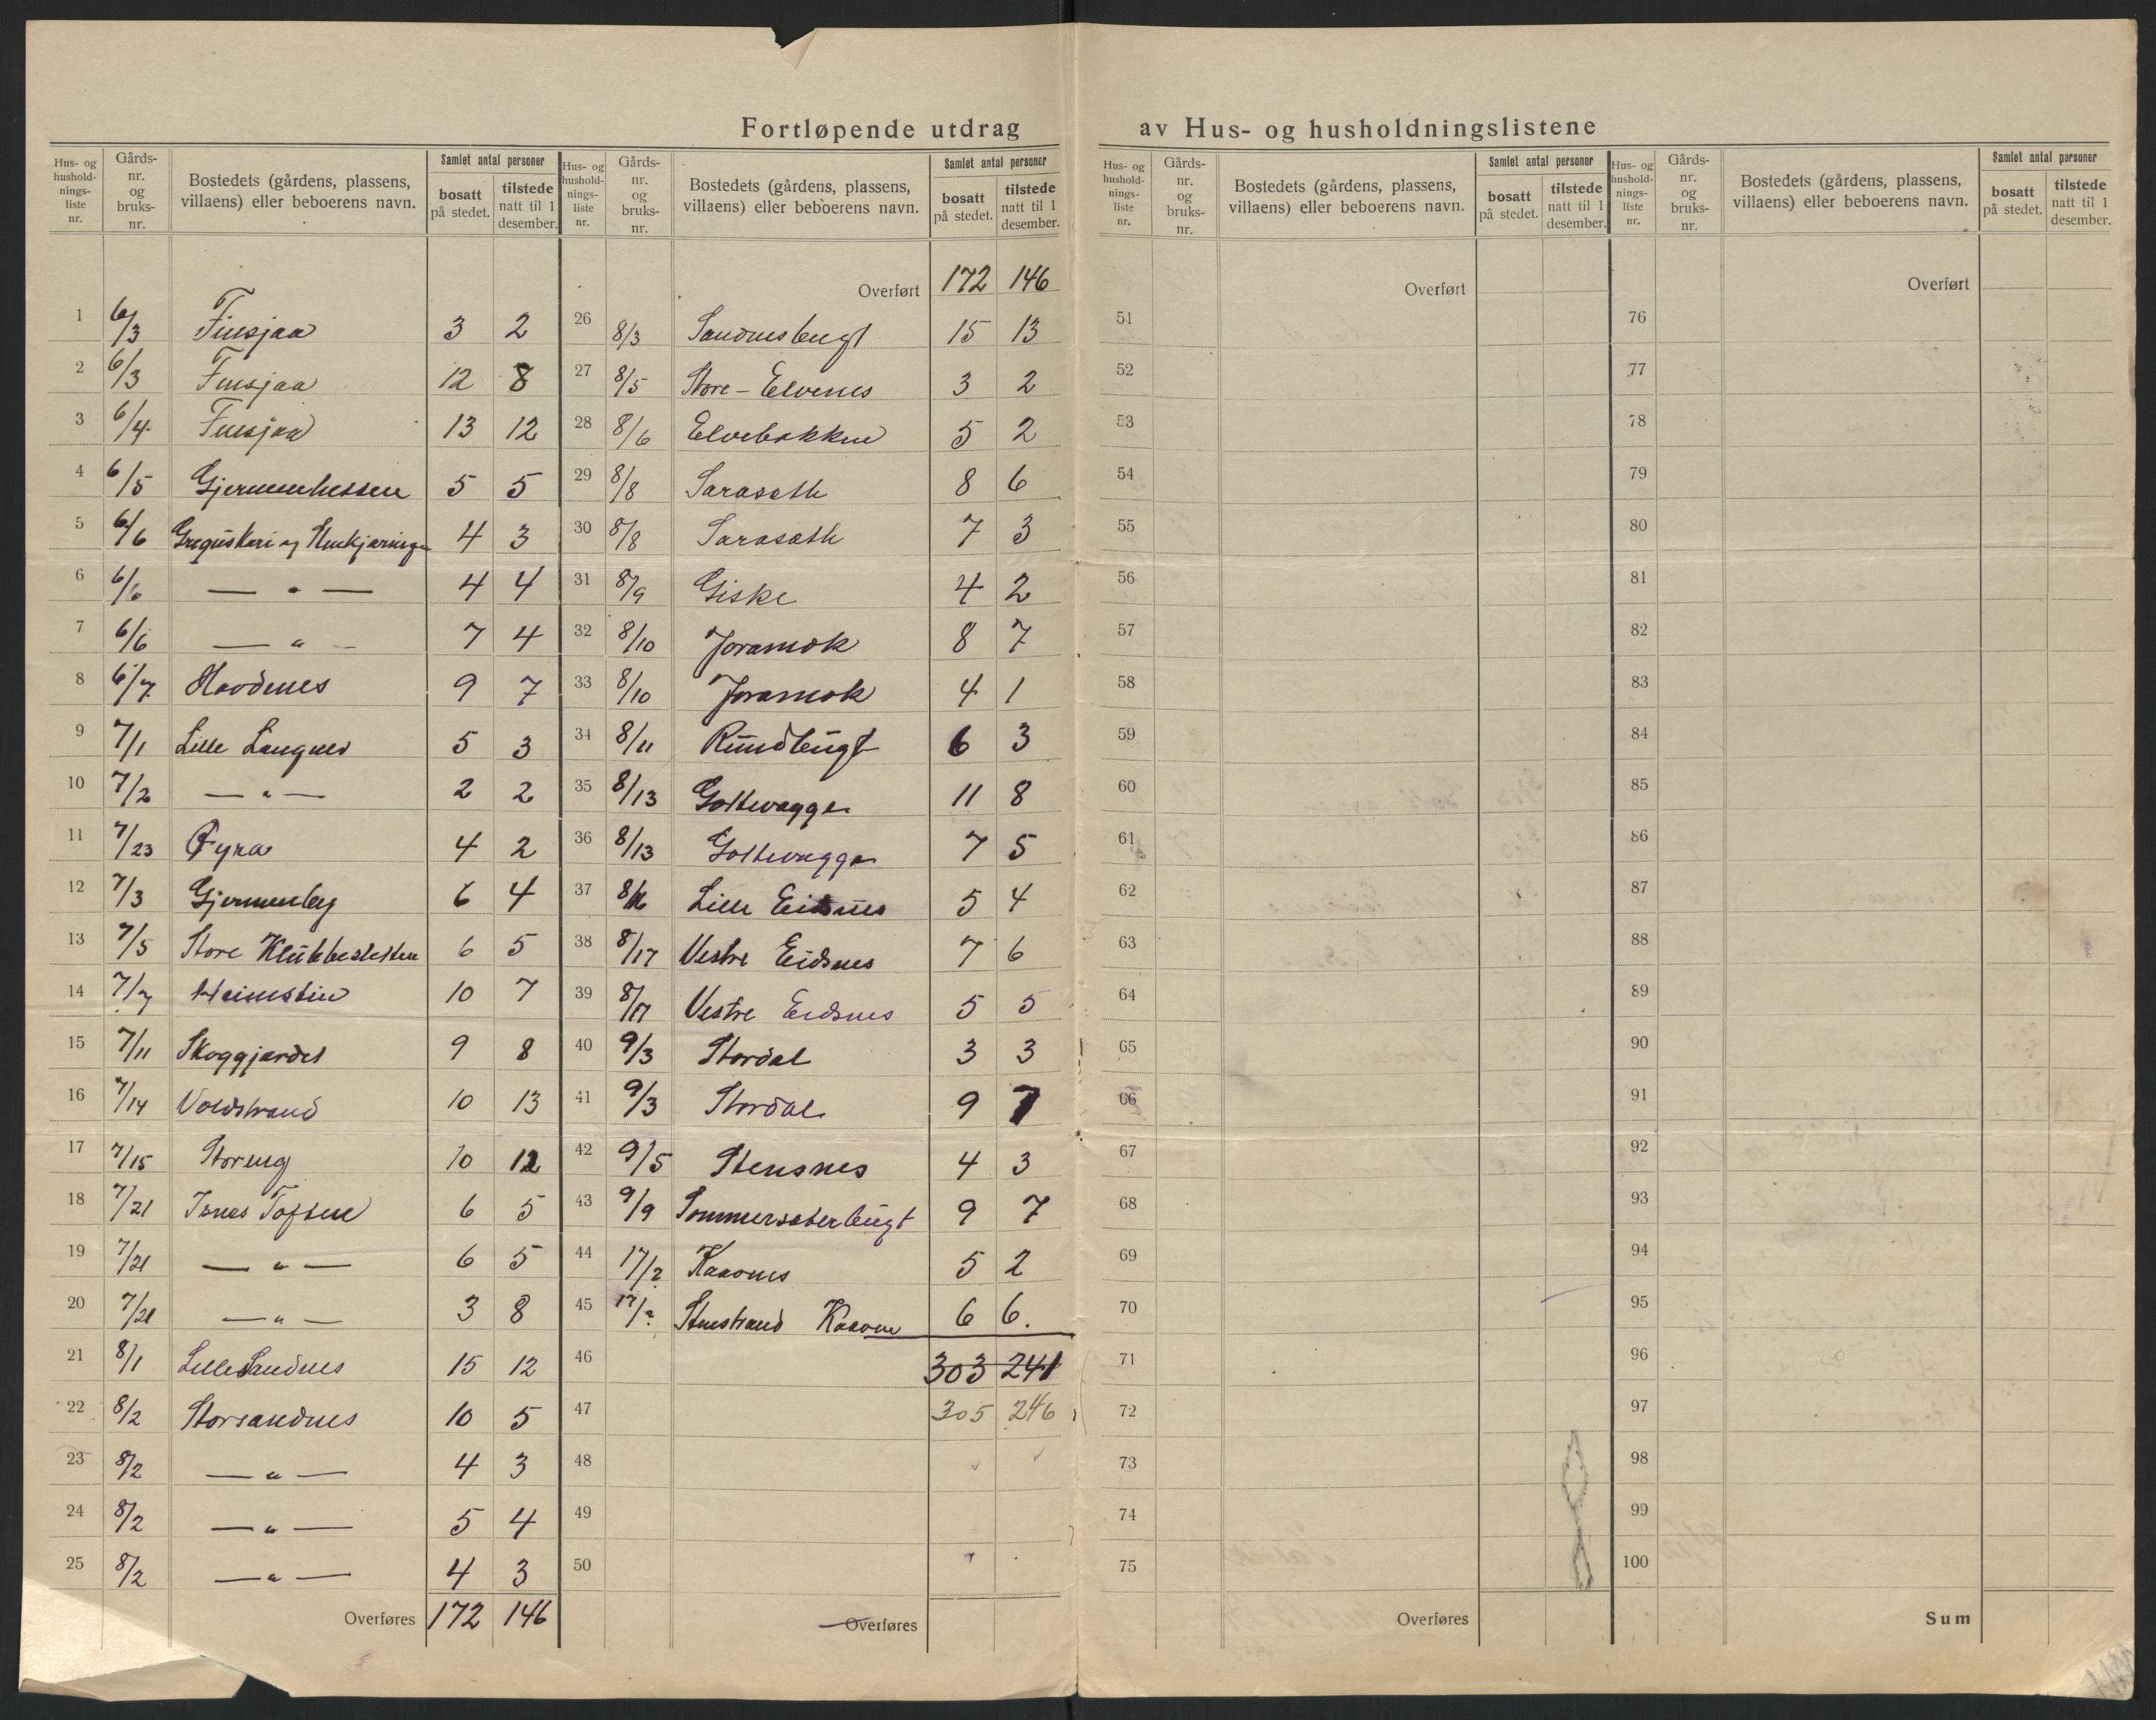 Fortløpende utdrag av Hus- og husholdningslistene
Hus- og husholdnings-liste nr. | Gårds-nr. og bruks-nr. | Bostedets (gårdens, plassens, villaens) eller beboerens navn. | Samlet antal personer | bosatt på stedet. | tilstede natt til 1 desember.
1 6/3 Finsjaa 3 2
2 6/3 Finsjaa 12 8
3 6/4 Finsjaa 13 12
4 6/5 5 5
5 6/6 4 3
6 6/6 — " — 4 4
7 6/6 — " — 7 4
8 6/7 Havdnes 9 7
9 7/1 Lille Langnes 5 3
10 7/2 — " — 2 2
11 7/23 Øyra 4 2
12 7/3 Gjermenberg 6 4
13 7/5 Store Klubbesletten 6 5
14 7/7 Heimstin 10 7
15 7/11 Skoggjærdet 9 8
16 7/14 Voldstrand 10 13
17 7/15 Storeng 10 12
18 7/21 Isnes Toften 6 5
19 7/21 — " — 6 5
20 7/21 — " — 3 8
21 8/1 Lille Sandnes 15 12
22 8/2 Storsandnes 10 5
23 8/2 — " — 4 3
24 8/2 — " — 5 4
25 8/2 — " — 4 3
Overføres 172 146
Hus- og husholdnings-liste nr. | Gårds-nr. og bruks-nr. | Bostedets (gårdens, plassens, villaens) eller beboerens navn. | Samlet antal personer | bosatt på stedet. | tilstede natt til 1 desember.
Overført 172 146
26 8/3 Sandnesbugt 15 13
27 8/5 Store-Elvenes 3 2
28 8/6 Elvebakken 5 2
29 8/8 Sarasæth 8 6
30 8/8 Sarasæth 7 3
31 8/9 Giske 4 2
32 8/10 Joramok 8 7
33 8/10 Joramok 4 1
34 8/11 Rundbugt 6 3
35 8/13 Goltevagge 11 8
36 8/13 Goltevagge 7 5
37 8/16 Lille Eidsnes 5 4
38 8/17 Vestre Eidsnes 7 6
39 8/17 Vestre Eidsnes 5 5
40 9/3 Stordal 3 3
41 9/3 Stordal 9 7
42 9/5 Stensnes 4 3
43 9/9 Sommersæterbugt 9 7
44 17/2 Kaavnes 5 2
45 17/2 Stenstrand Kaavnes 6 6.
46 303 241
47 305 246
48
49
50
Overføres
Hus- og husholdnings-liste nr. | Gårds-nr. og bruks-nr. | Bostedets (gårdens, plassens, villaens) eller beboerens navn. | Samlet antal personer | bosatt på stedet. | tilstede natt til 1 desember.
Overført
51
52
53
54
55
56
57
58
59
60
61
62
63
64
65
66
67
68
69
70
71
72
73
74
75
Overføres
Hus- og husholdnings-liste nr. | Gårds-nr. og bruks-nr. | Bostedets (gårdens, plassens, villaens) eller beboerens navn. | Samlet antal personer | bosatt på stedet. | tilstede natt til 1 desember.
Overført
76
77
78
79
80
81
82
83
84
85
86
87
88
89
90
91
92
93
94
95
96
97
98
99
100
Sum